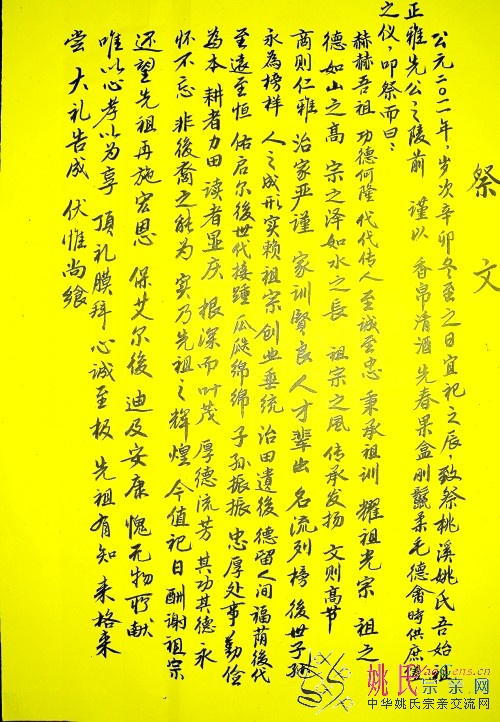 祭文
公元二〇一一年，岁次辛卯冬至之日宜祀之辰，致祭桃溪姚氏吾始祖
正雅先公之陵前 谨以 香帛清酒先春果盒刚鬣柔毛德禽時供庶羞
之仪，叩祭而曰：
赫赫吾祖 功德何隆代代传人 至诚至忠 秉承祖训 耀祖光宗 祖之
德如山之高 宗之泽如水之長 祖宗之風 传承发扬 文则高节
商则仁雅 治家严谨 家训賢良 人才辈出 名流列榜 後世子孫
永為榜样 人之成形实赖祖宗 创业垂统 治田遺後 德留人间 福荫後代
至遠至恒 佑启尔後世代接踵 瓜瓞绵绵 子孙振振 忠厚处事勤俭
為本 耕者力田 读者显庆 根深而叶茂 厚德流芳 其功其德 永
怀不忘 非後裔之能为 实乃先祖之辉煌 今值祀日 酬谢祖宗
还望先祖再施宏恩 保艾尔後 迪及安康 愧无物可献
唯以心孝以为享 頂礼膜拜 心诚至极 先祖有知 来格来
尝 大礼告成 伏惟尚飨
姚氏宗亲网
YaoGens.cn
中华姚氏宗亲交流网